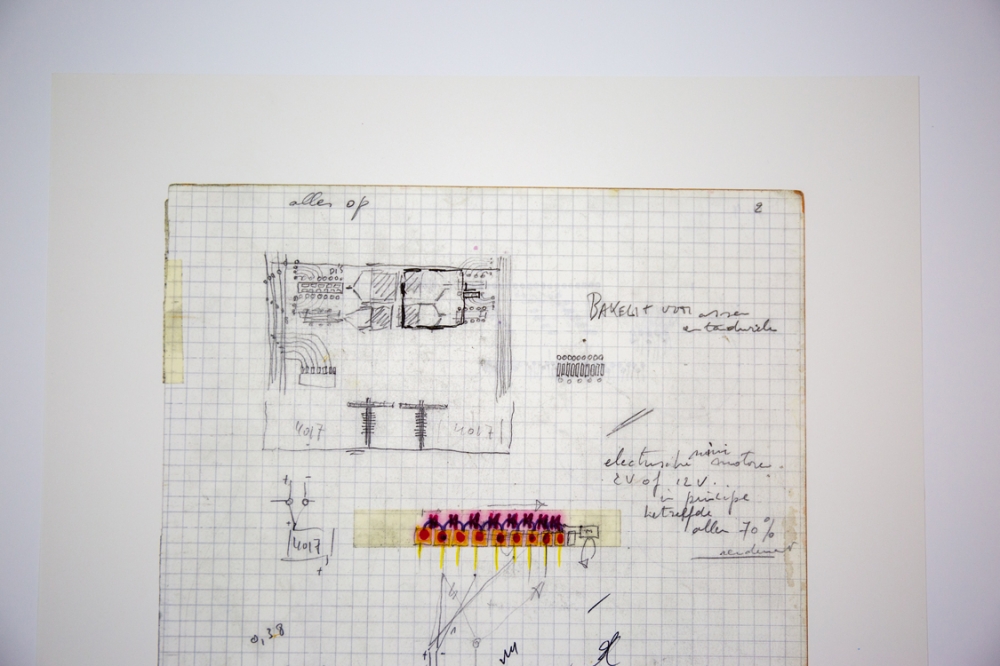 alles op
2
BAKELIT voor assen
4017
4017
electrische mini motore.
2V of 12V..
in principe
betreffde
allen 70%
rendement
+ -
+
4017
+
0,38